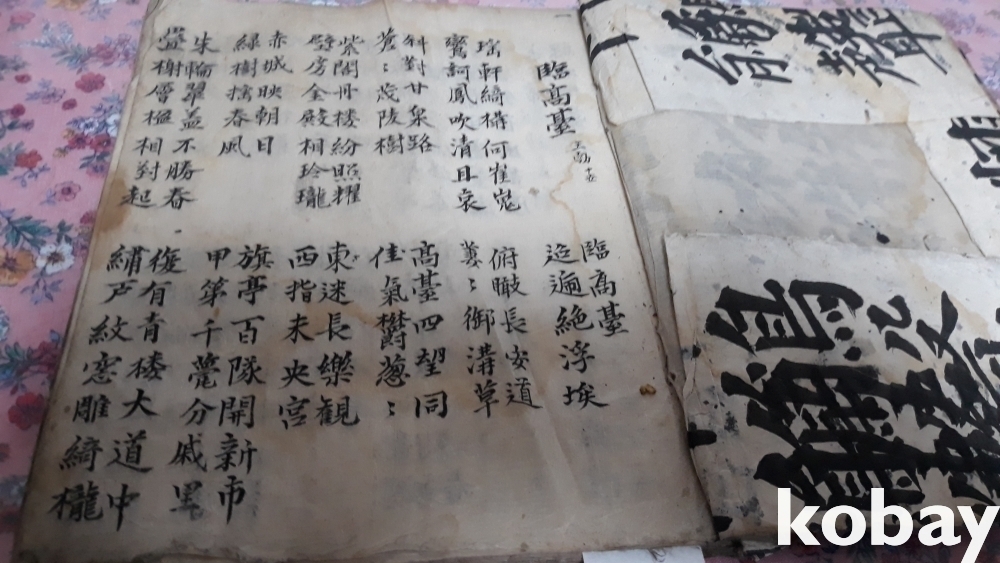 臨高臺 王勃
臨高臺
迢遞絶浮埃
瑤軒綺構何崔嵬
鸞謌鳳吹清且哀
俯瞰長安道
萋〻御溝草
斜對甘泉路
蒼〻茂陵樹
高臺四望同
佳氣欝葱〻
紫閣丹楼紛照耀
璧房金殿相玲瓏
東迷長樂観
西指未央宮
赤城映朝日
緑樹搖春風
旗亭百隊開新市
甲第千甍分戚里
朱輪翠盖不勝春
疊榭層楹相對起
復有青樓大道中
繡戸紋窓雕綺櫳
kobay